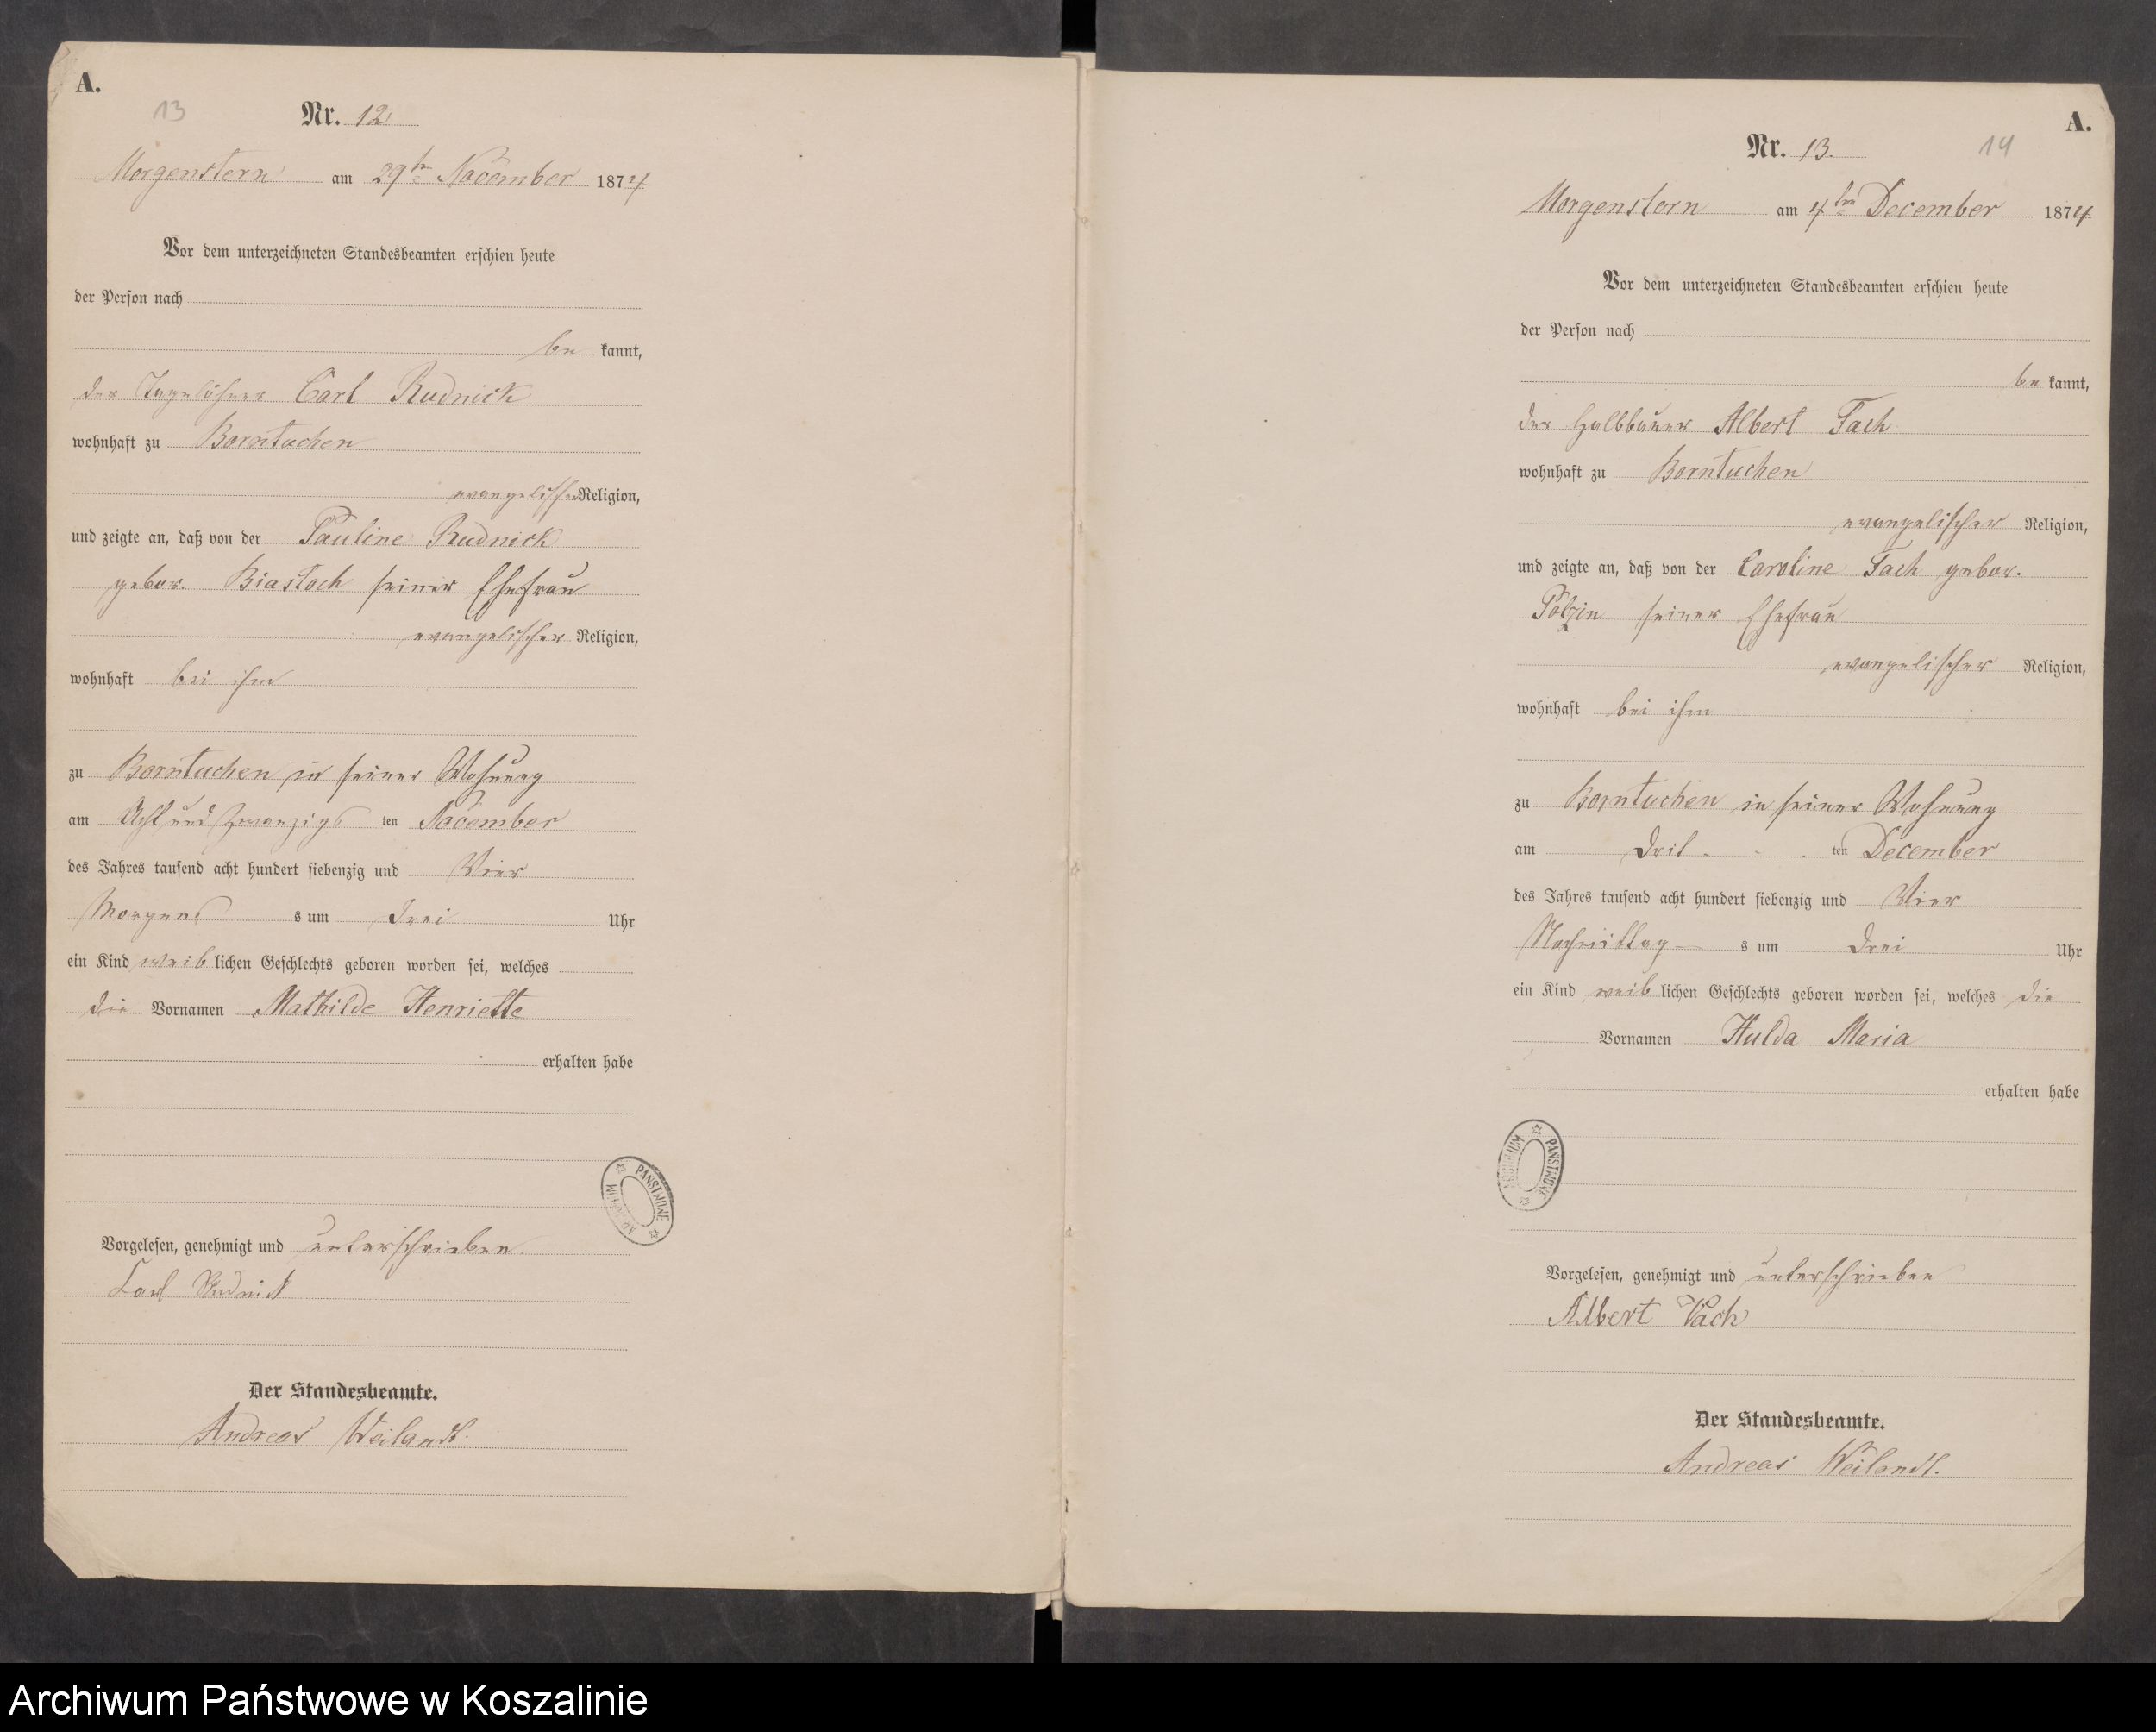 A.
13
Nr. 12
Morgenstern am 29ten November 1874
Vor dem unterzeichneten Standesbeamten erschien heute
der Person nach
be kannt,
der Tagelöhner Carl Rudnick
wohnhaft zu Borntuchen
evangelischer Religion,
und zeigte an, daß von der Pauline Rudnick
gebor. Biastoch seiner Ehefrau
evangelischer Religion,
wohnhaft bei ihm
zu Borntuchen in seiner Wohnung
am Acht und zwanzigs ten November
des Jahres tausend acht hundert siebenzig und Vier
Morgens s um drei Uhr
ein Kind weib lichen Geschlechts geboren worden sei, welches
die Vornamen Mathilde Henriette
erhalten habe
ARCHIWUM PAŃSTWOWE
Vorgelesen, genehmigt und unterschrieben.
Carl Rudnick
Der Standesbeamte.
Andreas Weilandt.
A.
14
Nr. 13.
Morgenstern am 4ten December 1874
Vor dem unterzeichneten Standesbeamten erschien heute
der Person nach
be kannt,
der Halbbauer Albert Tach
wohnhaft zu Borntuchen
evangelischer Religion,
und zeigte an, daß von der Caroline Tach gebor.
Polzin seiner Ehefrau
evangelischer Religion,
wohnhaft bei ihm
zu Borntuchen in seiner Wohnung
am Drit ten December
des Jahres tausend acht hundert siebenzig und Vier
Nachmittag s um drei Uhr
ein Kind weib lichen Geschlechts geboren worden sei, welches die
Vornamen Hulda Maria
erhalten habe
ARCHIWUM PAŃSTWOWE
Vorgelesen, genehmigt und unterschrieben
Albert Tach
Der Standesbeamte.
Andreas Weilandt.
Archiwum Państwowe w Koszalinie